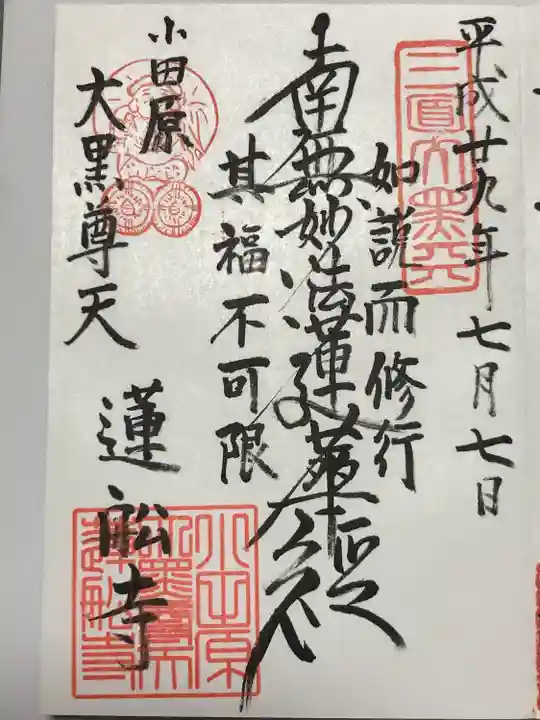 平成廿九年七月七日
如説而修行
南無妙法蓮華経
其福不可限
小田原
大黒尊天
蓮船寺
三面大黒天
小田原